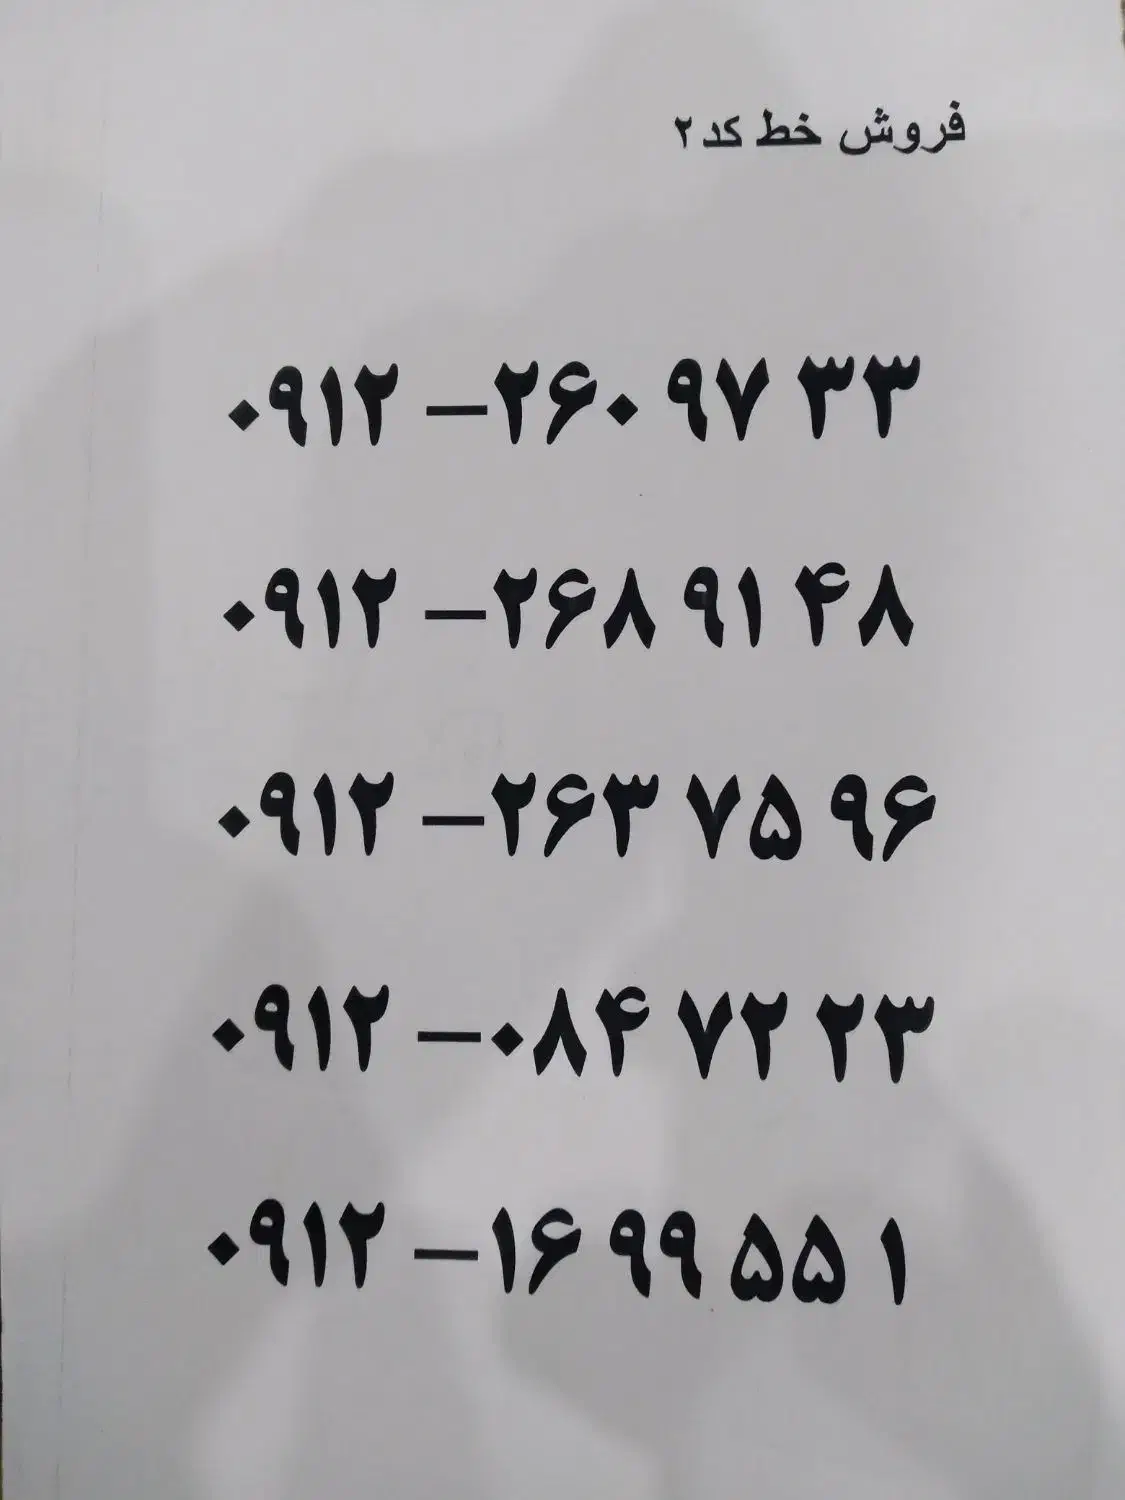 فروش خط کد ۲
۰۹۱۲ – ۲۶۰ ۹۷ ۳۳
۰۹۱۲ – ۲۶۸ ۹۱ ۴۸
۰۹۱۲ – ۲۶۳ ۷۵ ۹۶
۰۹۱۲ – ۰۸۴ ۷۲ ۲۳
۰۹۱۲ – ۱۶ ۹۹ ۵۵ ۱